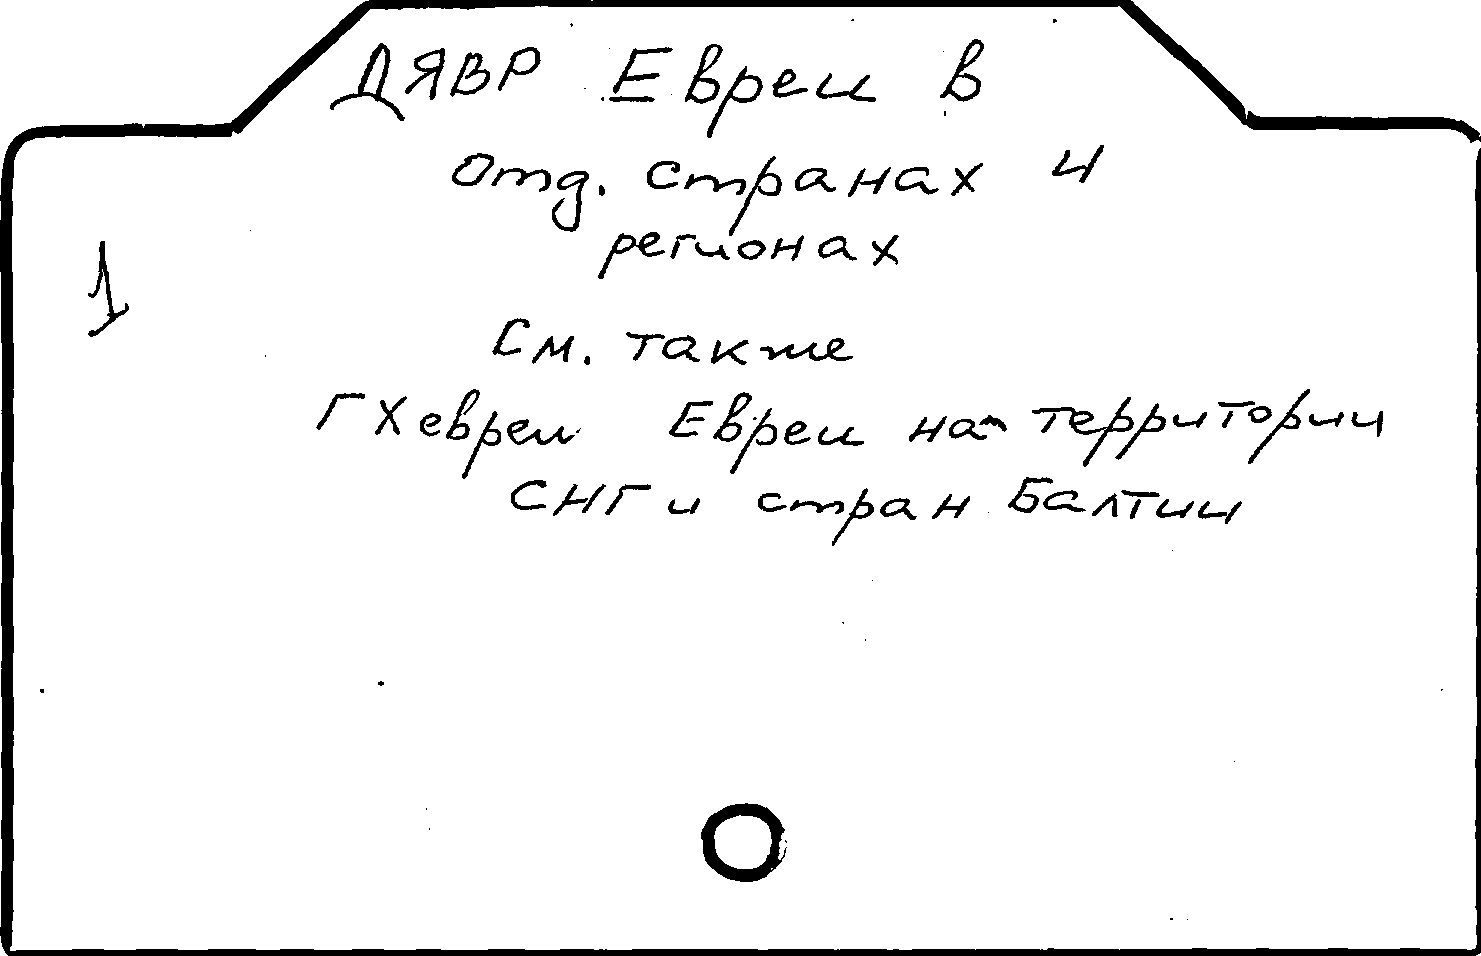 ДЯВР Евреи в
отд. странах и
регионах
1
См. также
ГХевреи Евреи на территории
СНГ и стран Балтии